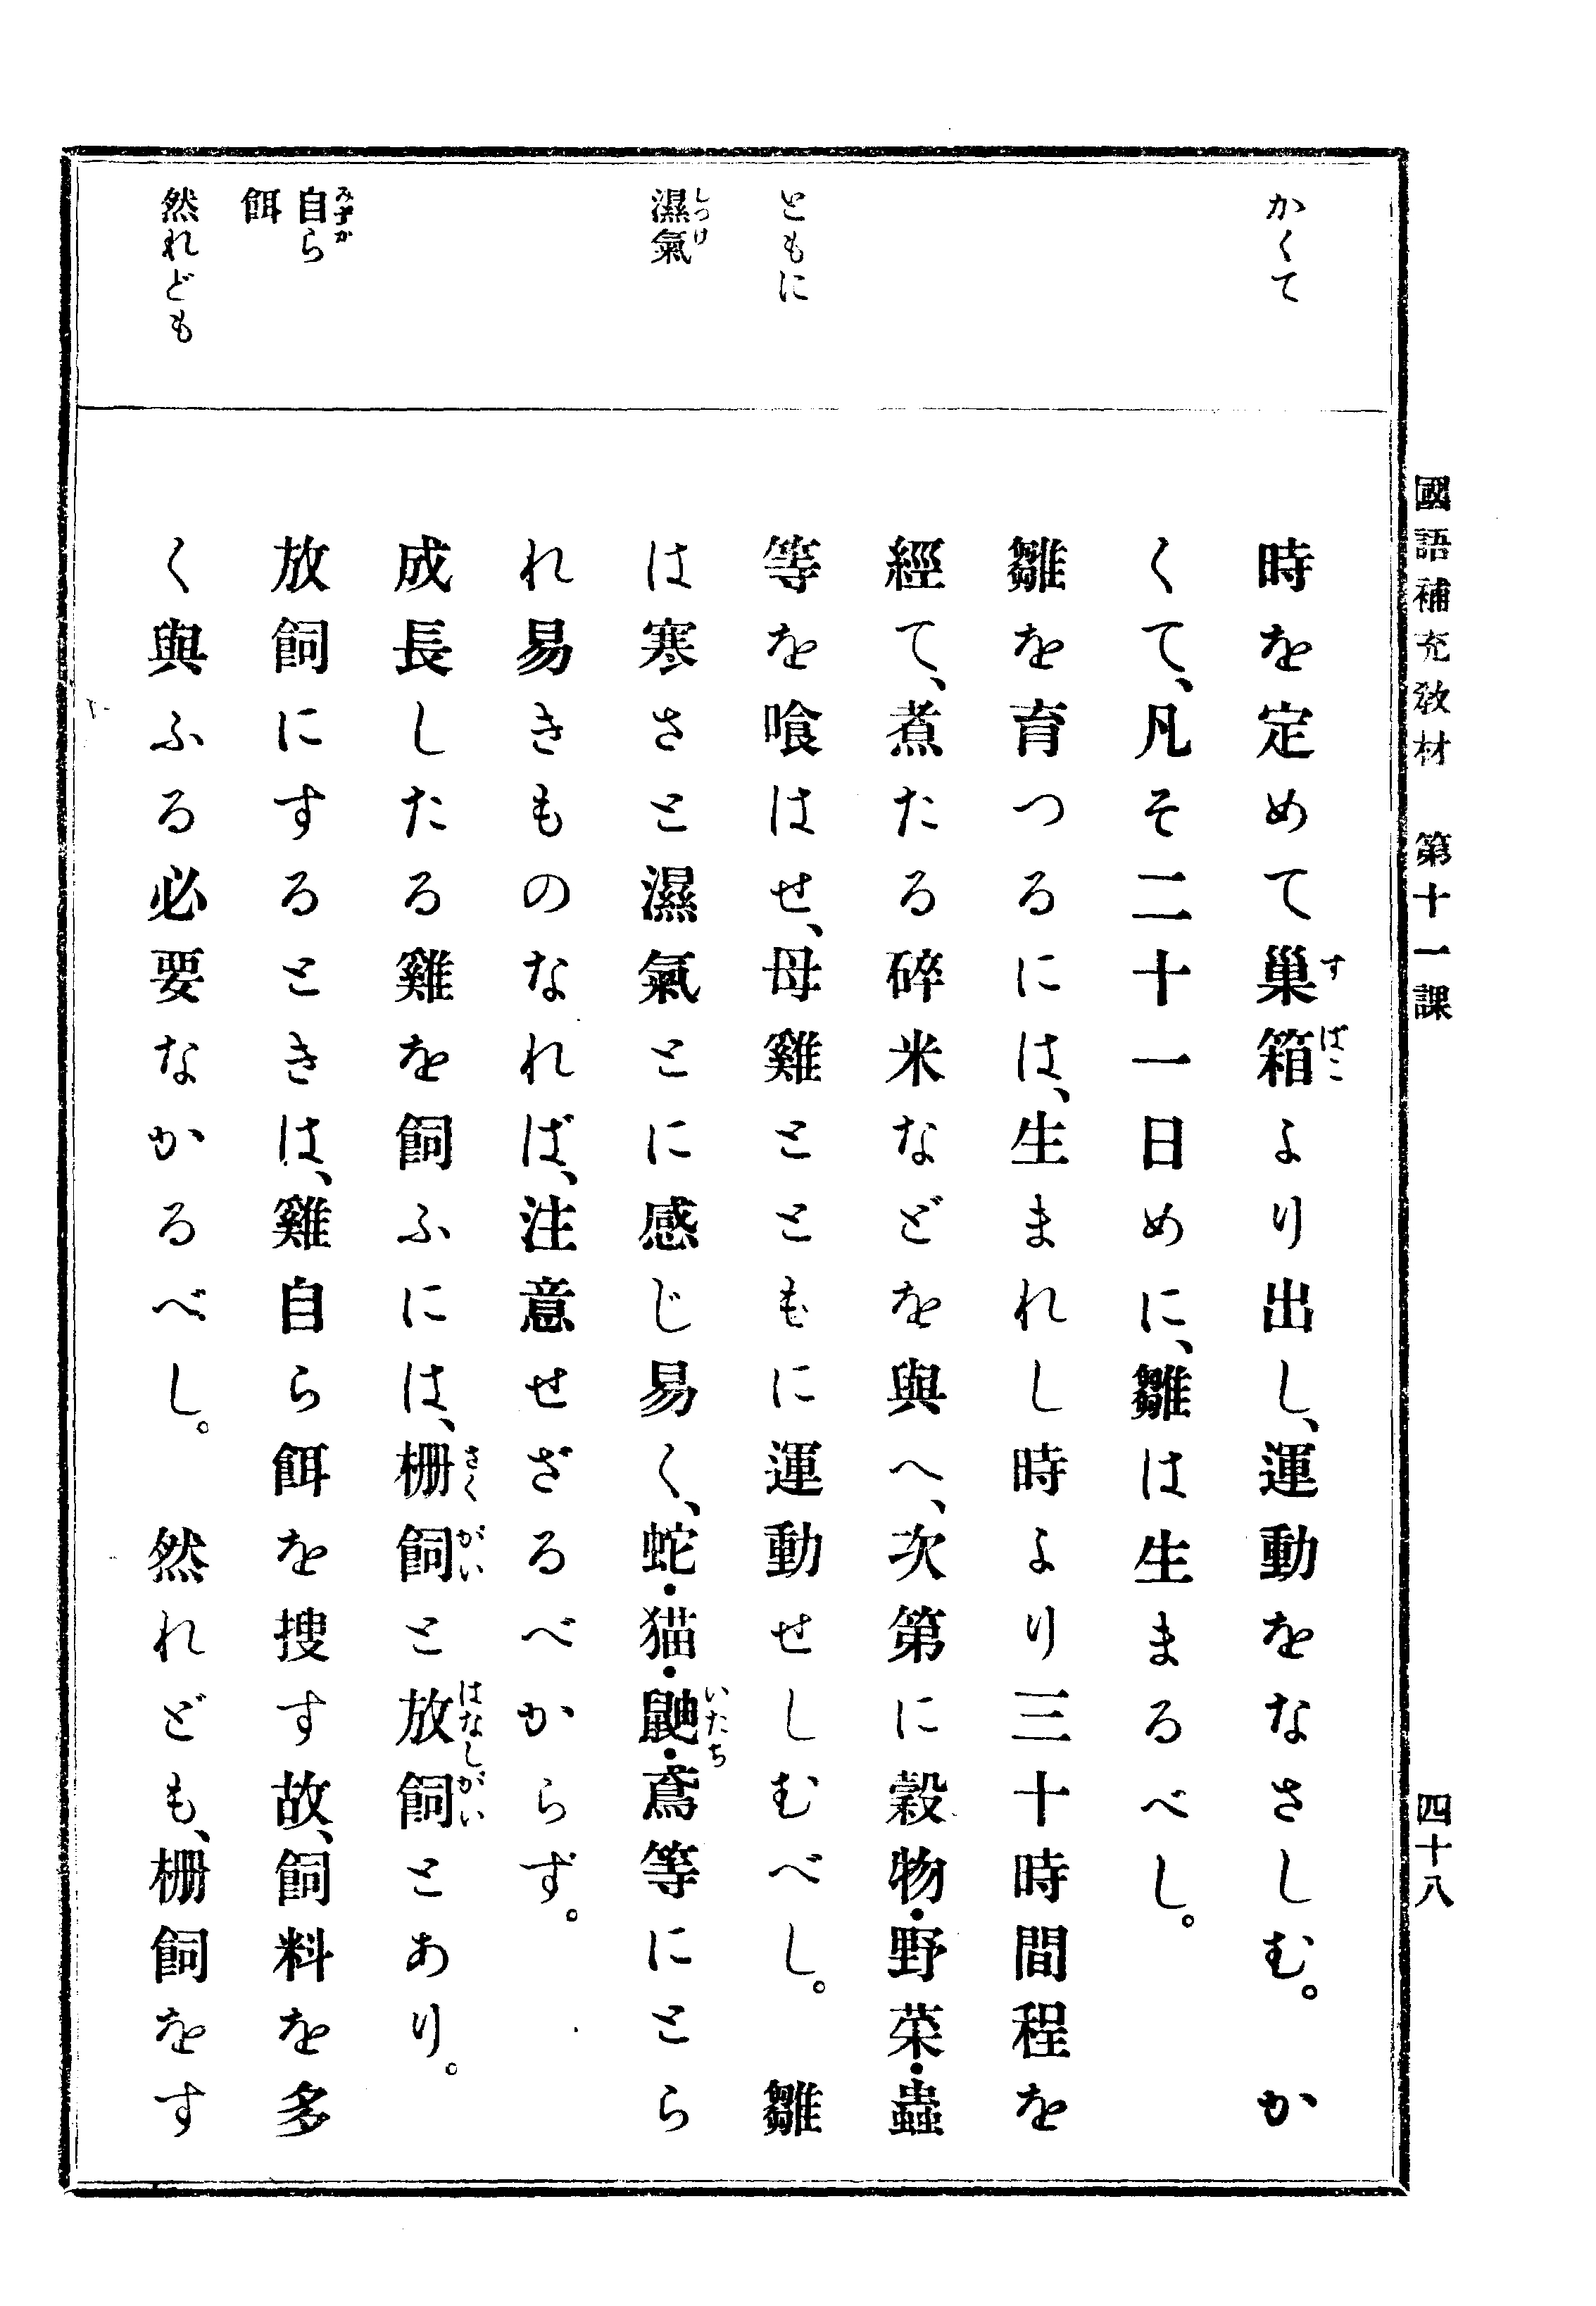 國語補充敎材　第十一課　四十八
かくて
ともに
濕氣
自ら
餌
然れども
時を定めて巢箱より出し、運動をなさしむ。　か
くて、凡そ二十一日めに、雛は生まるべし。
雛を育つるには、生まれし時より三十時間程を
經て、煮たる碎米などを與へ、次第に穀物・野菜・蟲
等を喰はせ、母雞とともに運動せしむべし。　雛
は寒さと濕氣とに感じ易く、蛇・猫・鼬・鳶等にとら
れ易きものなれば、注意せざるべからず。
成長したる雞を飼ふには、柵飼と放飼とあり。
放飼にするときは、雞自ら餌を搜す故、飼料を多
く與ふる必要なかるべし。　然れども、柵飼をす